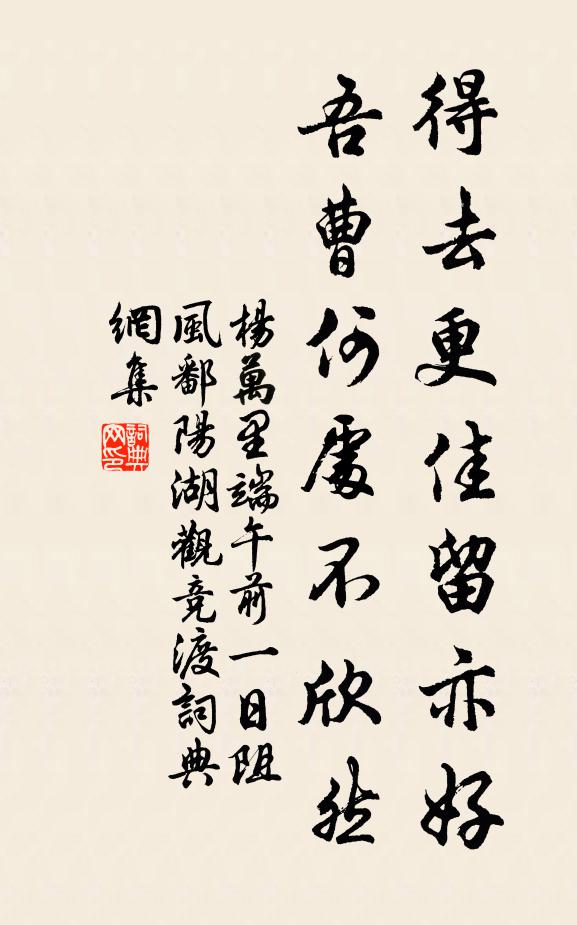 得去更佳留亦好
吾曹何處不欣然
楊萬里端午前一日阻
風鄱陽湖觀竞渡詞典
網集
詞典
网印